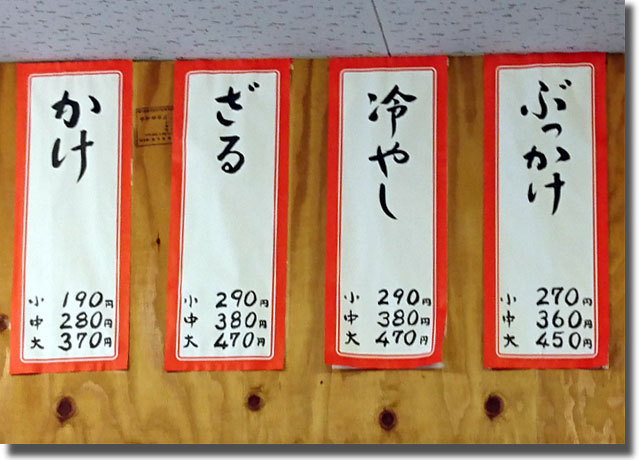 かけ
小 190円
中 280円
大 370円
ざる
小 290円
中 380円
大 470円
冷やし
小 290円
中 380円
大 470円
ぶっかけ
小 270円
中 360円
大 450円